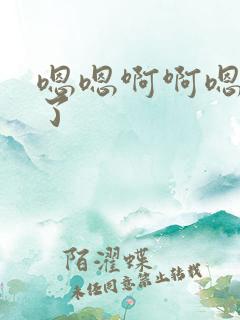 嗯嗯啊啊嗯
了
陌濯蝶
未经同意禁止转载